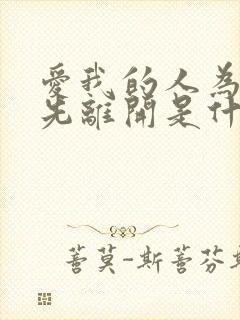 愛我的人為
先離開是什
蒼莫-斯蒼芬斯